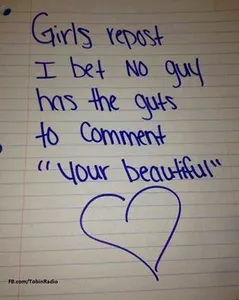 Girls repost
I bet No guy
has the guts
to Comment
"Your beautiful"
FB.com/TobinRadio